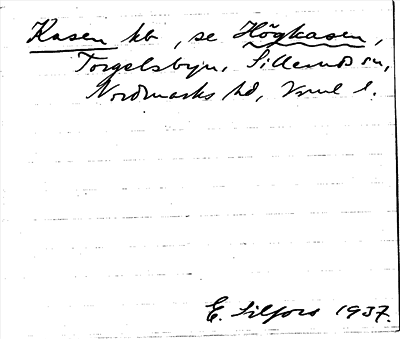 Kasen kb, se Högkasen,
Torgelsbyn, Sillerud sn,
Nordmarks hd, Vrml l.
E. Silfors 1937.